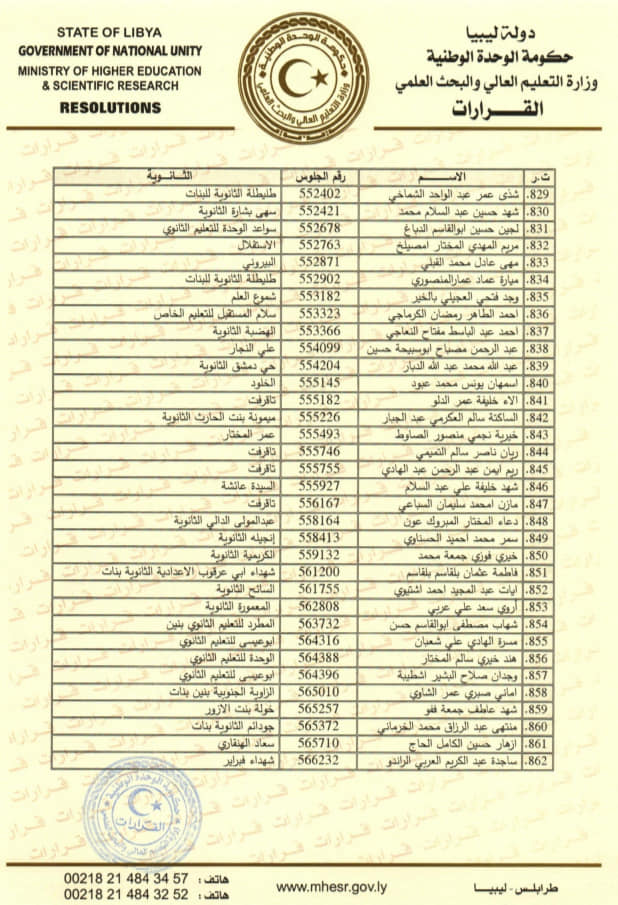 STATE OF LIBYA
GOVERNMENT OF NATIONAL UNITY
MINISTRY OF HIGHER EDUCATION
& SCIENTIFIC RESEARCH
RESOLUTIONS
دولة ليبيا
حكومة الوحدة الوطنية
وزارة التعليم العالي والبحث العلمي
القرارات
حكومة الوحدة الوطنية
وزارة التعليم العالي والبحث العلمي
ت.ر الاسم رقم الجلوس الثانوية
829. شذى عمر عبد الواحد الشماخي 552402 طليطلة الثانوية للبنات
830. شهد حسين عبد السلام محمد 552421 سهى بشارة الثانوية
831. لجين حسين ابوالقاسم الدباغ 552678 سواعد الوحدة للتعليم الثانوي
832. مريم المهدي المختار امصيلخ 552763 الاستقلال
833. مهى عادل محمد القبلي 552871 البيروني
834. ميارة عماد عمارالمنصوري 552902 طليطلة الثانوية للبنات
835. وجد فتحي العجيلي بالخير 553182 شموع العلم
836. احمد الطاهر رمضان الكرماجي 553323 سلام المستقبل للتعليم الخاص
837. احمد عبد الباسط مفتاح النعاجي 553366 الهضبة الثانوية
838. عبد الرحمن مصباح ابوسبيحة حسين 554099 علي النجار
839. عبد الله محمد عبد الله الدبار 554204 حي دمشق الثانوية
840. اسمهان يونس محمد عبود 555145 الخلود
841. الاء خليفة عمر الدلو 555182 تاقرفت
842. الساكتة سالم العكرمي عبد الجبار 555226 ميمونة بنت الحارث الثانوية
843. خيرية نجمي منصور الصاوط 555493 عمر المختار
844. ريان ناصر سالم التميمي 555746 تاقرفت
845. ريم ايمن عبد الرحمن عبد الهادي 555755 تاقرفت
846. شهد خليفة علي عبد السلام 555927 السيدة عائشة
847. مازن امحمد سليمان السباعي 556167 تاقرفت
848. دعاء المختار المبروك عون 558164 عبدالمولى الدالي الثانوية
849. سمر محمد احميد الحسناوي 558413 إنجيله الثانوية
850. خيري فوزي جمعة محمد 559132 الكريمية الثانوية
851. فاطمة عثمان بلقاسم بلقاسم 561200 شهداء ابي عرقوب الاعدادية الثانوية بنات
852. ايات عبد المجيد احمد اشتيوي 561755 السائح الثانوية
853. أروي سعد علي عربي 562808 المعمورة الثانوية
854. شهاب مصطفى ابوالقاسم حسن 563732 المطرد للتعليم الثانوي بنين
855. مسرة الهادي علي شعبان 564316 ابوعيسى للتعليم الثانوي
856. هند خيري سالم المختار 564388 الوحدة للتعليم الثانوي
857. وجدان صلاح البشير اشطيبة 564396 ابوعيسى للتعليم الثانوي
858. اماني صبري عمر الشاوي 565010 الزاوية الجنوبية بنين بنات
859. شهد عاطف جمعة ففو 565257 خولة بنت الازور
860. منتهى عبد الرزاق محمد الخرماني 565372 جودائم الثانوية بنات
861. ازهار حسين الكامل الحاج 565710 سعاد الهنقاري
862. ساجدة عبد الكريم العربي الراندو 566232 شهداء فبراير
القرارات
00218 21 484 34 57 : هاتف
00218 21 484 32 52 : هاتف
www.mhesr.gov.ly
طرابلس - ليبيا